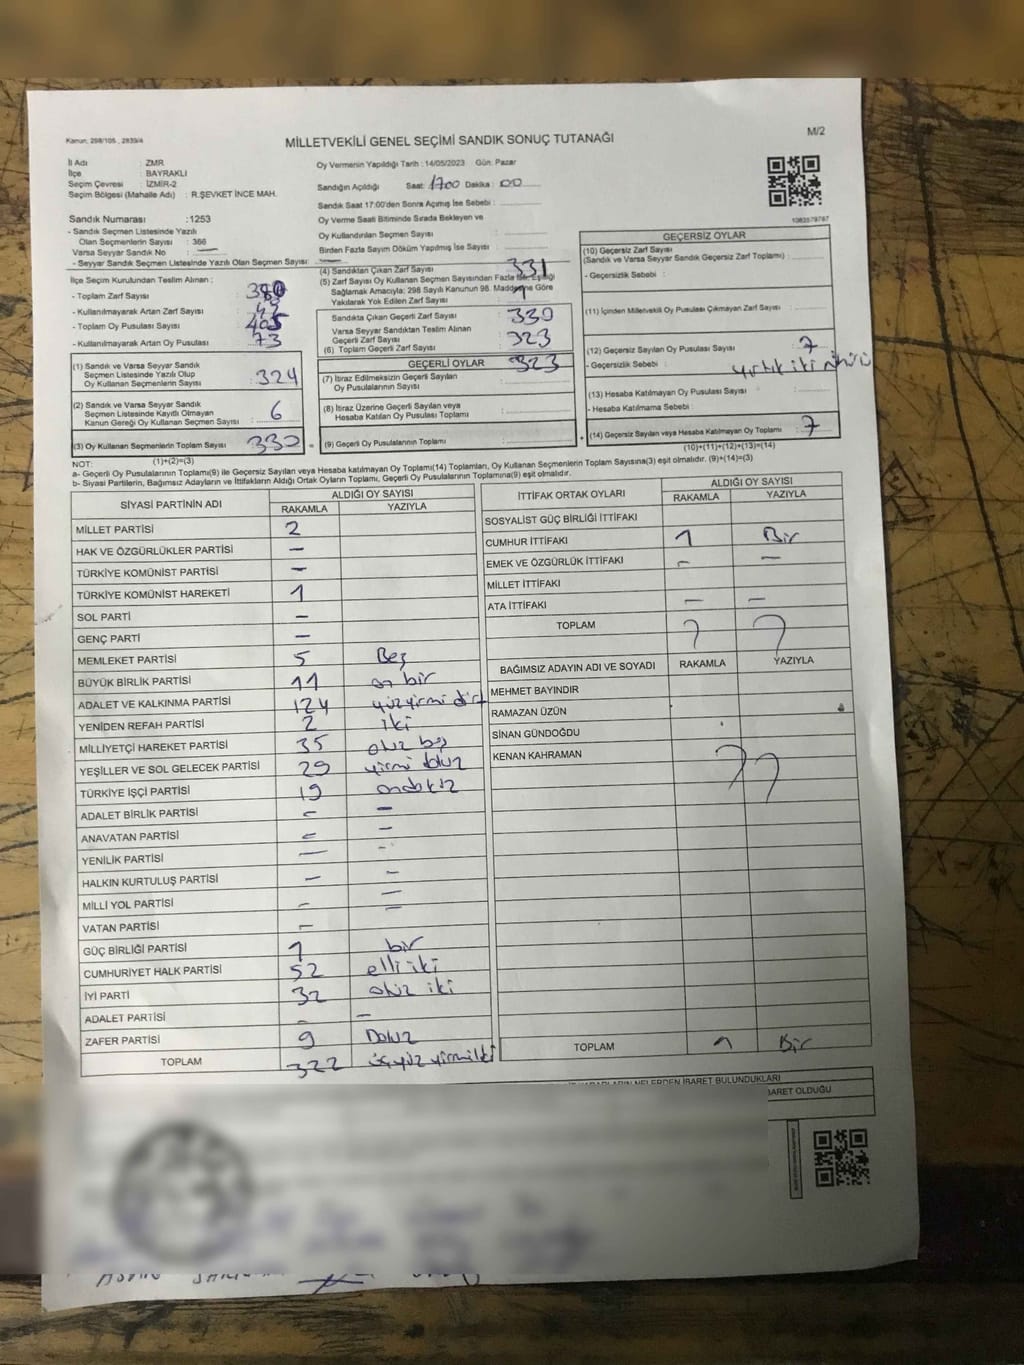 Kanun; 298/105 , 2839/4
MİLLETVEKİLİ GENEL SEÇİMİ SANDIK SONUÇ TUTANAĞI
M/2
İl Adı : ZMR
İlçe : BAYRAKLI
Seçim Çevresi : İZMİR-2
Seçim Bölgesi (Mahalle Adı) : R.ŞEVKET İNCE MAH.
Sandık Numarası :1253
- Sandık Seçmen Listesinde Yazılı
Olan Seçmenlerin Sayısı : 366
Varsa Seyyar Sandık No : —
- Seyyar Sandık Seçmen Listesinde Yazılı Olan Seçmen Sayısı: —
Oy Vermenin Yapıldığı Tarih : 14/05/2023 Gün: Pazar
Sandığın Açıldığı Saat: 1700 Dakika : 00
Sandık Saat 17:00'den Sonra Açılmış İse Sebebi :
Oy Verme Saati Bitiminde Sırada Bekleyen ve
Oy Kullandırılan Seçmen Sayısı :
Birden Fazla Sayım Döküm Yapılmış İse Sayısı :
1082579787
İlçe Seçim Kurulundan Teslim Alınan ;
- Toplam Zarf Sayısı :
- Kullanılmayarak Artan Zarf Sayısı :
- Toplam Oy Pusulası Sayısı : 405
- Kullanılmayarak Artan Oy Pusulası : 73
(1) Sandık ve Varsa Seyyar Sandık
Seçmen Listesinde Yazılı Olup
Oy Kullanan Seçmenlerin Sayısı : 324
(2) Sandık ve Varsa Seyyar Sandık
Seçmen Listesinde Kayıtlı Olmayan
Kanun Gereği Oy Kullanan Seçmen Sayısı : 6
(3) Oy Kullanan Seçmenlerin Toplam Sayısı : 330 =
(4) Sandıktan Çıkan Zarf Sayısı : 331
(5) Zarf Sayısı Oy Kullanan Seçmen Sayısından Fazla ise, Eşitliği
Sağlamak Amacıyla; 298 Sayılı Kanunun 98. Maddesine Göre
Yakılarak Yok Edilen Zarf Sayısı : 1
Sandıkta Çıkan Geçerli Zarf Sayısı : 330
Varsa Seyyar Sandıktan Teslim Alınan
Geçerli Zarf Sayısı : 323
(6) Toplam Geçerli Zarf Sayısı :
GEÇERLİ OYLAR 323
(7) İtiraz Edilmeksizin Geçerli Sayılan
Oy Pusulalarının Sayısı :
(8) İtiraz Üzerine Geçerli Sayılan veya
Hesaba Katılan Oy Pusulası Toplamı :
(9) Geçerli Oy Pusulalarının Toplamı : +
GEÇERSİZ OYLAR
(10) Geçersiz Zarf Sayısı
(Sandık ve Varsa Seyyar Sandık Geçersiz Zarf Toplamı) :
- Geçersizlik Sebebi :
(11) İçinden Milletvekili Oy Pusulası Çıkmayan Zarf Sayısı :
(12) Geçersiz Sayılan Oy Pusulası Sayısı : 7
- Geçersiz Sebebi : yırtık iki mühür
(13) Hesaba Katılmayan Oy Pusulası Sayısı :
- Hesaba Katılmama Sebebi :
(14) Geçersiz Sayılan veya Hesaba Katılmayan Oy Toplamı : 7
(10)+(11)+(12)+(13)=(14)
NOT: (1)+(2)=(3)
a- Geçerli Oy Pusulalarının Toplamı(9) ile Geçersiz Sayılan veya Hesaba katılmayan Oy Toplamı(14) Toplamları, Oy Kullanan Seçmenlerin Toplam Sayısına(3) eşit olmalıdır. (9)+(14)=(3)
b- Siyasi Partilerin, Bağımsız Adayların ve İttifakların Aldığı Ortak Oyların Toplamı, Geçerli Oy Pusulalarının Toplamına(9) eşit olmalıdır.
SİYASİ PARTİNİN ADI ALDIĞI OY SAYISI
RAKAMLA YAZIYLA
MİLLET PARTİSİ 2
HAK VE ÖZGÜRLÜKLER PARTİSİ —
TÜRKİYE KOMÜNİST PARTİSİ —
TÜRKİYE KOMÜNİST HAREKETİ 1
SOL PARTİ —
GENÇ PARTİ —
MEMLEKET PARTİSİ 5 Beş
BÜYÜK BİRLİK PARTİSİ 11 on bir
ADALET VE KALKINMA PARTİSİ 124 yüzyirmi dört
YENİDEN REFAH PARTİSİ 2 iki
MİLLİYETÇİ HAREKET PARTİSİ 35 otuz beş
YEŞİLLER VE SOL GELECEK PARTİSİ 29 yirmi dokuz
TÜRKİYE İŞÇİ PARTİSİ 19 ondokuz
ADALET BİRLİK PARTİSİ — —
ANAVATAN PARTİSİ — —
YENİLİK PARTİSİ — —
HALKIN KURTULUŞ PARTİSİ — —
MİLLİ YOL PARTİSİ — —
VATAN PARTİSİ — —
GÜÇ BİRLİĞİ PARTİSİ 1 bir
CUMHURİYET HALK PARTİSİ 52 elli iki
İYİ PARTİ 32 otuz iki
ADALET PARTİSİ — —
ZAFER PARTİSİ 9 Dokuz
TOPLAM 322 üçyüz yirmi iki
İTTİFAK ORTAK OYLARI ALDIĞI OY SAYISI
RAKAMLA YAZIYLA
SOSYALİST GÜÇ BİRLİĞİ İTTİFAKI
CUMHUR İTTİFAKI 1 Bir
EMEK VE ÖZGÜRLÜK İTTİFAKI — —
MİLLET İTTİFAKI
ATA İTTİFAKI — —
TOPLAM
BAĞIMSIZ ADAYIN ADI VE SOYADI RAKAMLA YAZIYLA
MEHMET BAYINDIR
RAMAZAN ÜZÜN
SİNAN GÜNDOĞDU
KENAN KAHRAMAN
TOPLAM 1 Bir
KARARLARIN NELERDEN İBARET BULUNDUKLARI
İBARET OLDUĞU